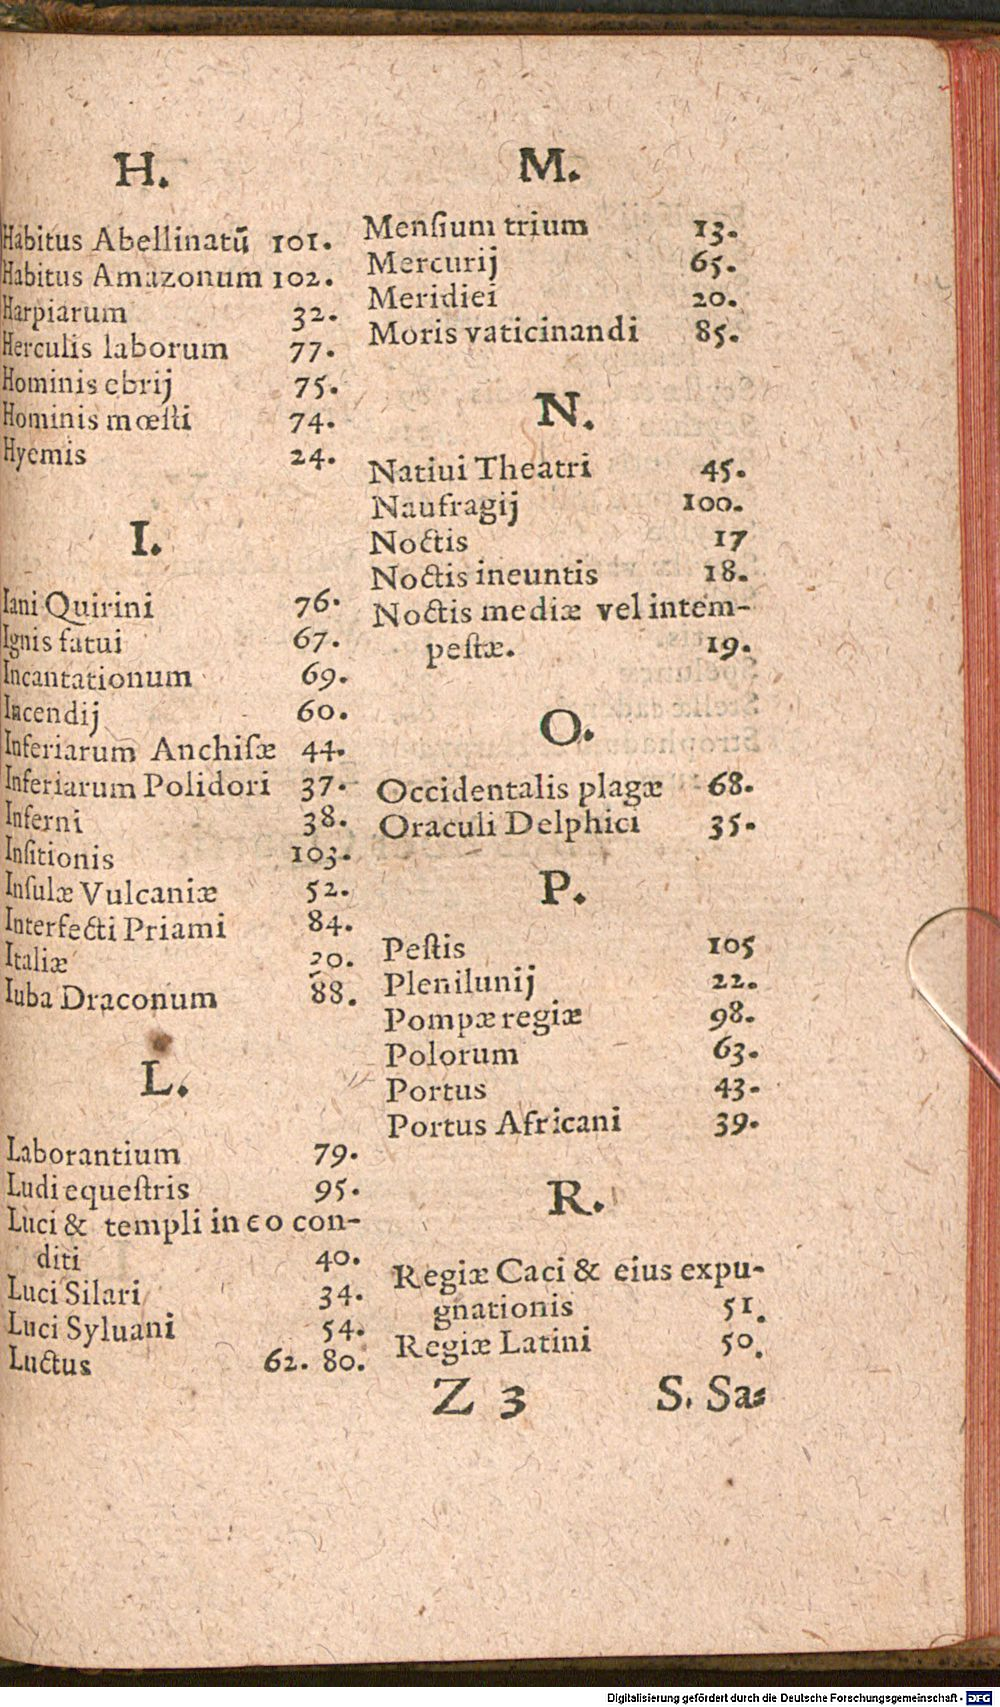 H.
Habitus Abellinatū 101.
Habitus Amazonum 102.
Harpiarum 32.
Herculis laborum 77.
Hominis ebrij 75.
Hominis mœſti 74.
Hyemis 24.
I.
Iani Quirini 76.
Ignis fatui 67.
Incantationum 69.
Incendij 60.
Inferiarum Anchiſæ 44.
Inferiarum Polidori 37.
Inferni 38.
Inſitionis 103.
Inſulæ Vulcaniæ 52.
Interfecti Priami 84.
Italiæ 30.
Iuba Draconum 88.
L.
Laborantium 79.
Ludi equeſtris 95.
Luci & templi in eo con-
diti 40.
Luci Silari 34.
Luci Syluani 54.
Luctus 62. 80.
M.
Menſium trium 13.
Mercurij 65.
Meridiei 20.
Moris vaticinandi 85.
N.
Natiui Theatri 45.
Naufragij 100.
Noctis 17
Noctis ineuntis 18.
Noctis mediæ vel intem-
peſtæ. 19.
O.
Occidentalis plagæ 68.
Oraculi Delphici 35.
P.
Peſtis 105
Plenilunij 22.
Pompæ regiæ 98.
Polorum 63.
Portus 43.
Portus Africani 39.
R.
Regiæ Caci & eius expu-
gnationis 51.
Regiæ Latini 50.
Z 3 S. Sa-
Digitalisierung gefördert durch die Deutsche Forschungsgemeinschaft - DFG